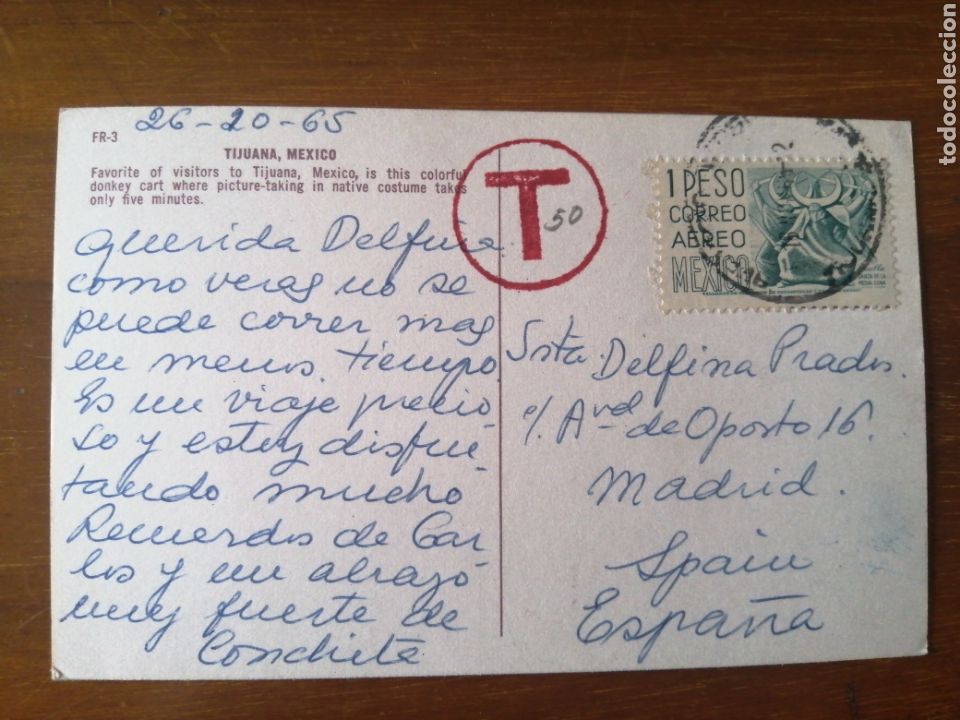 26-10-65
FR-3
TIJUANA, MEXICO
Favorite of visitors to Tijuana, Mexico, is this colorful
donkey cart where picture-taking in native costume takes
only five minutes.
Querida Delfina
como veras no se
puede correr mas
en menos tiempo
Es un viaje precio-
so y estoy disfru-
tando mucho
Recuerdos de Car-
los y un abrazo
muy fuerte de
Conchita
T
50
1 PESO
CORREO
AEREO
MEXICO
DANZA DE LA
MEDIA LUNA
Srta Delfina Prados.
c/. Avd de Oporto 16.
Madrid.
Spain
España
todocoleccion